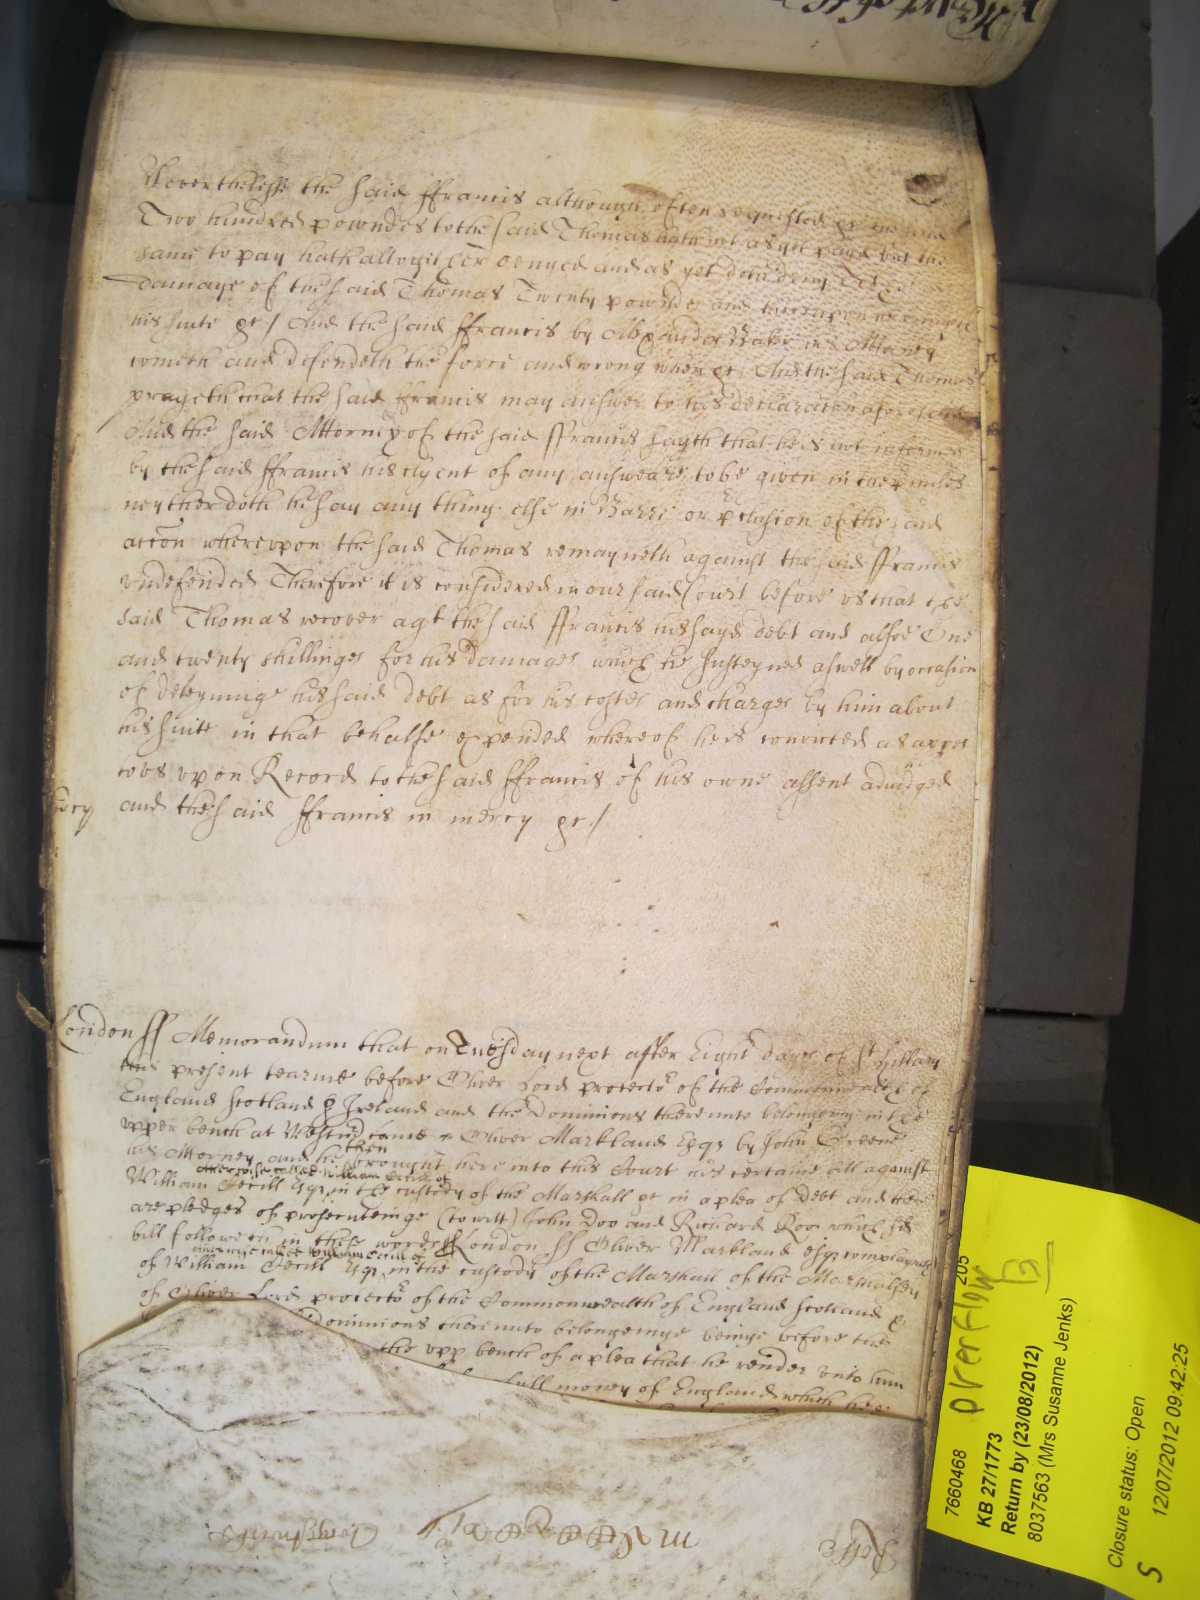 Neverthelesse the said ffrancis although often requested &c the said
Two hundred powndes to the said Thomas hath not as yet payd but the
same to pay hath altogither denyed and as yet doth deny To the
damage of the said Thomas Twenty powndes and thereupon he bringeth
his suite &c / And the said ffrancis by Alexander Baker his Attorney
cometh and defendeth the force and wrong when &c And the said Thomas
prayeth that the said ffrancis may answer to his declaracon aforesaid
And the said Attorney of the said ffrancis sayth that he is not informed
by the said ffrancis his clyent of any answeare to be given in the p'misses
neyther doth he say any thing else in Barre or p'clusion of the said
accon whereupon the said Thomas remayneth against the said ffrancis
vndefended Therefore it is considered in our said Court before vs that the
said Thomas recover agt the said ffrancis his sayd debt and alsoe One
and twenty shillinges for his damages which he susteyned aswell by occasion
of deteyninge his said debt as for his costes and charges by him about
his suite in that behalfe expended whereof he is convicted as appes
to vs vpon Record to the said ffrancis of his owne assent adiudged
and the said ffrancis in mercy &c /
London ss Memorandum that on Tuesday next after Eight dayes of St Hillary
this present tearme before Oliver Lord protector of the Commonwealth of
England Scotland & Ireland and the Dominions thereunto belonging in the
vpper bench at Westm' came Oliver Markland Esqr by John Greene
his Attorney and he then brought here into this Court his certaine bill against
otherwise called William Cecill of
William Cecill Esqr in the custody of the Marshall &c in a plea of debt and there
are pledges of prosecuteinge (to witt) John Doo and Richard Roo which sd
bill followeth in these wordes ss London ss Oliver Markland esqr complayneth
otherwise called William Cecill of
of William Cecill Esqr in the custody of the Marshall of the Marshalsey
of Oliver Lord protector of the Commonwealth of England Scotland &
Dominions thereunto belongeinge beinge before the
the vpp bench of a plea that he render vnto him
full money of England which he
Rolle
7660468
KB 27/1773
Return by (23/08/2012)
8037563 (Mrs Susanne Jenks)
Closure status: Open
12/07/2012 09:42:25
S
overflow
205